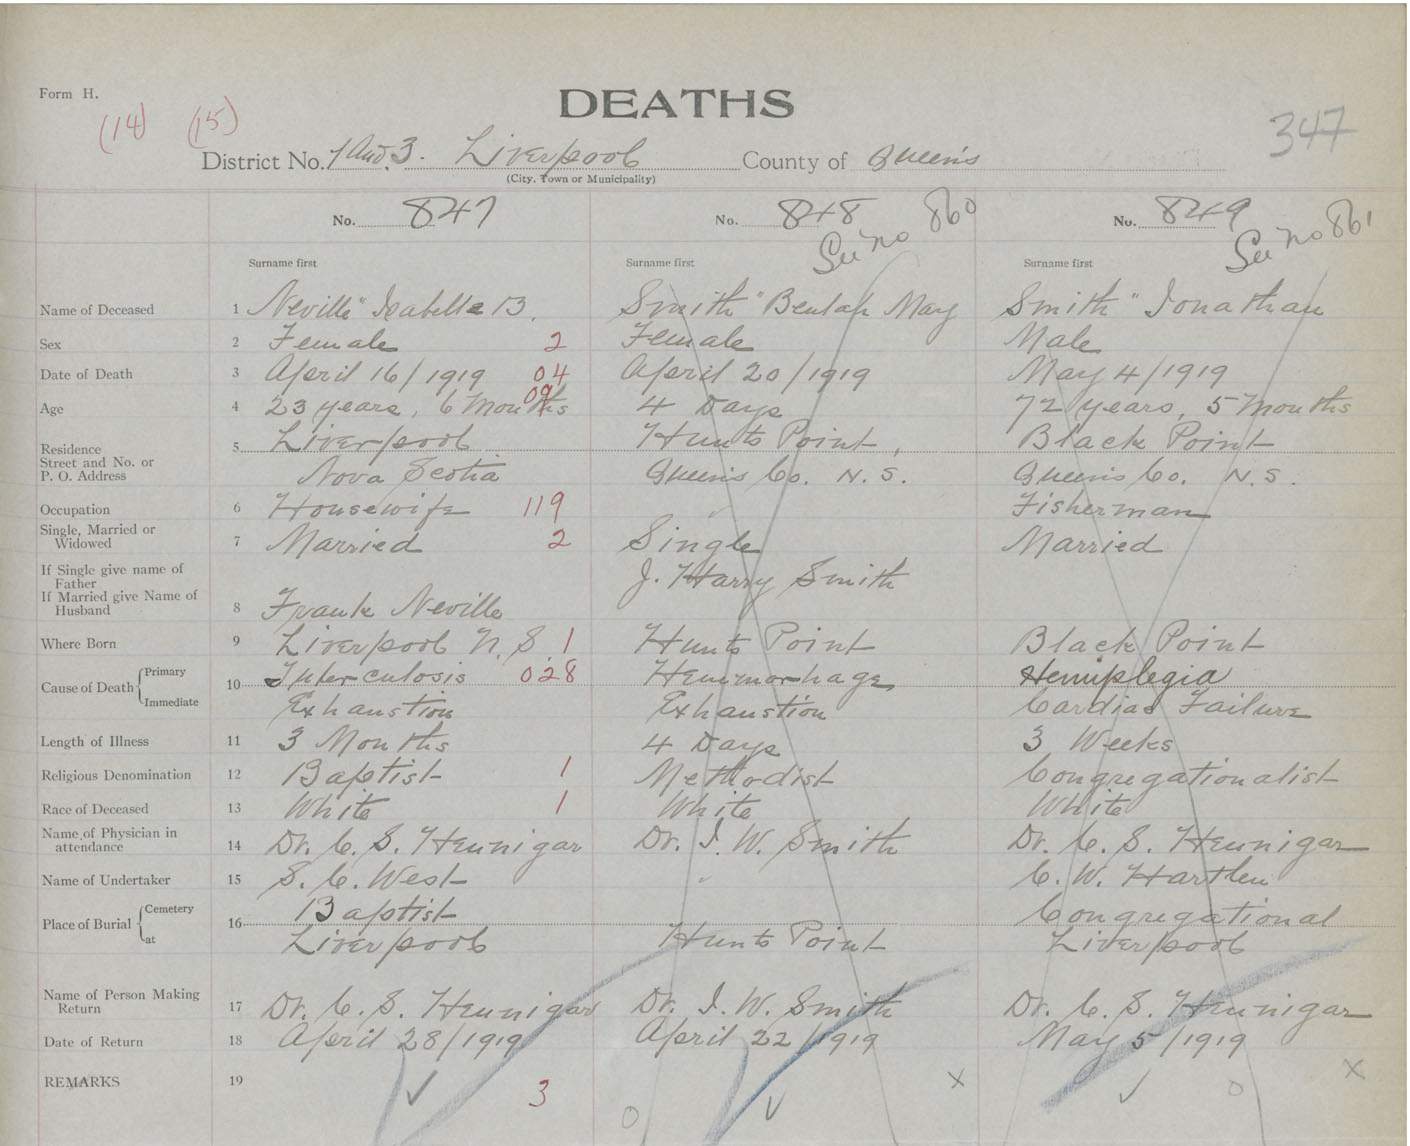 Form H.
DEATHS
(14) (15)
347
District No. 1 and 3. Liverpool County of Queens
(City, Town or Municipality)
No. 847 No. 848 No. 849
See no 860 See no 861
Surname first Surname first Surname first
Name of Deceased 1 Neville" Isabelle B. Smith "Beulah May Smith " Jonathan
Sex 2 Female 2 Female Male
Date of Death 3 April 16/1919 04 April 20/1919 May 4/1919
Age 4 23 years, 6 Months 09 4 Days 72 years, 5 Months
Residence 5 Liverpool Hunts Point, Black Point
Street and No. or
P. O. Address Nova Scotia Queens Co. N.S. Queens Co. N.S.
Occupation 6 Housewife 119 Fisherman
Single, Married or
Widowed 7 Married 2 Single Married
If Single give name of
Father J. Harry Smith
If Married give Name of
Husband 8 Frank Neville
Where Born 9 Liverpool N.S. 1 Hunts Point Black Point
Cause of Death Primary 10 Tuberculosis 028 Hemmorhage Hemiplegia
Immediate Exhaustion Exhaustion Cardiac Failure
Length of Illness 11 3 Months 4 Days 3 Weeks
Religious Denomination 12 Baptist 1 Methodist Congregationalist
Race of Deceased 13 White 1 White White
Name of Physician in
attendance 14 Dr. C. S. Hennigar Dr. I. W. Smith Dr. C. S. Hennigar
Name of Undertaker 15 S. C. West " C. W. Hartlen
Place of Burial Cemetery 16 Baptist Congregational
at Liverpool Hunts Point Liverpool
Name of Person Making
Return 17 Dr. C. S. Hennigar Dr. I. W. Smith Dr. C. S. Hennigar
Date of Return 18 April 28/1919 April 22/1919 May 5/1919
REMARKS 19 3